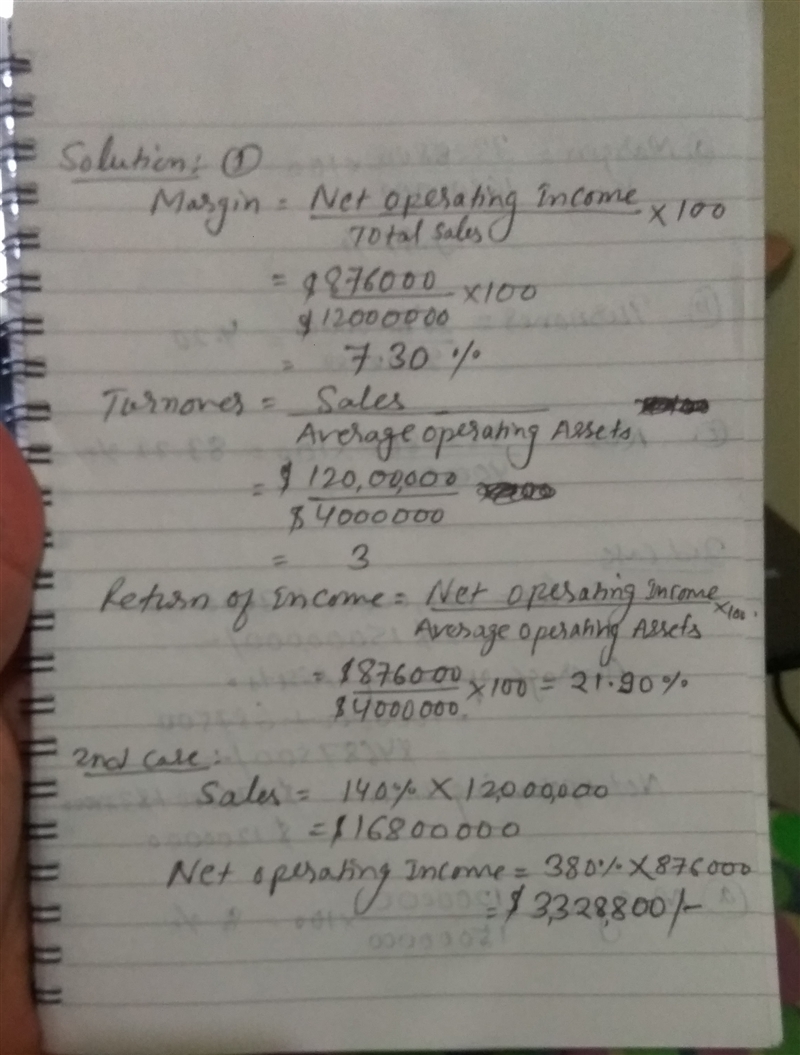 Solution: (1)
Margin = Net operating Income / Total Sales × 100
= $876000 / $12000000 × 100
= 7.30 %
Turnover = Sales / Average operating Assets
= $120,00,000 / $4000000
= 3
Return of Income = Net operating Income / Average operating Assets ×100.
= $876000 / $4000000 × 100 = 21.90%
2nd case:
Sales = 140% × 12,000,000
= $16800000
Net operating Income = 380% × 876000
= $3,328,800/-